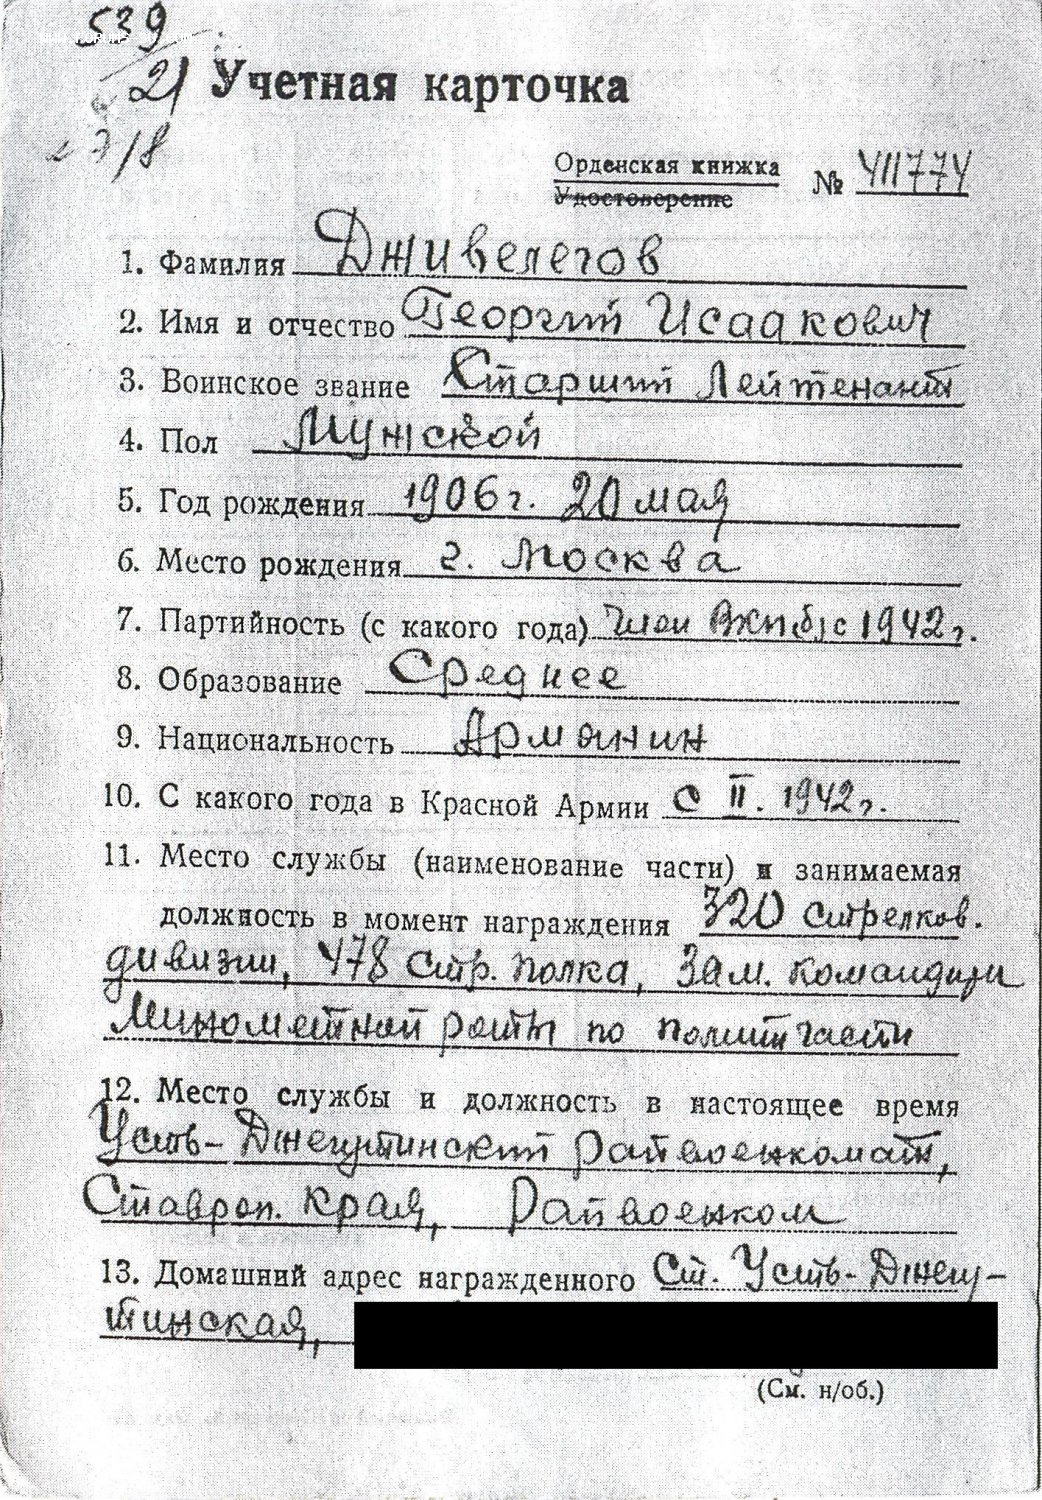 539
21 Учетная карточка
7/8
Орденская книжка
Удостоверение
№ 411774
1. Фамилия Дживелегов
2. Имя и отчество Георгий Исаакович
3. Воинское звание Старший Лейтенант
4. Пол Мужской
5. Год рождения 1906 г. 20 мая
6. Место рождения г. Москва
7. Партийность (с какого года) Член ВКП(б) с 1942 г.
8. Образование Среднее
9. Национальность Армянин
10. С какого года в Красной Армии С II. 1942 г.
11. Место службы (наименование части) и занимаемая
должность в момент награждения 320 стрелков.
дивизии, 478 стр. полка, зам. командира
Минометной роты по политчасти
12. Место службы и должность в настоящее время
Усть-Джегутинский райвоенкомат,
Ставроп. края, Райвоенком
13. Домашний адрес награжденного Ст. Усть-Джегу-
тинская,
(См. н/об.)